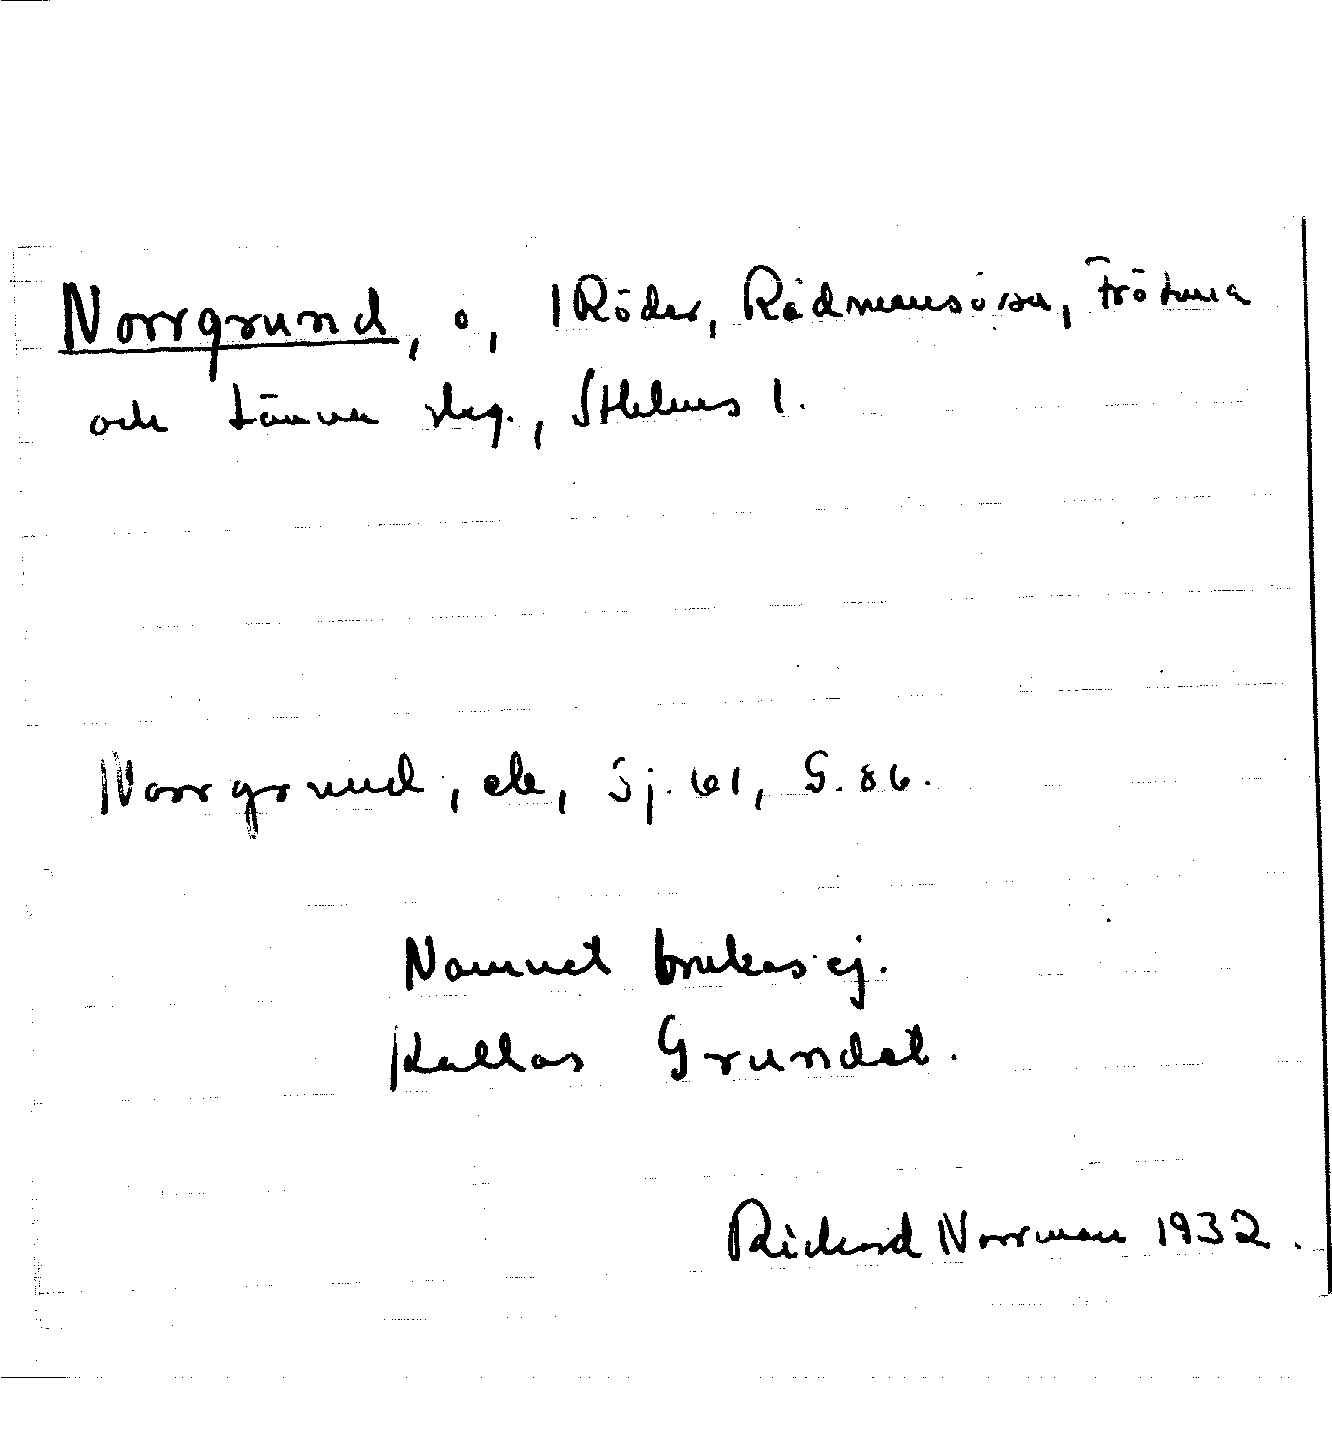 Norrgrund, ö, I Röder, Rådmansö sn, Frötuna
och Länna skg., Sthlms l.
Norrgrund, ek, Sj. 61, G. 86.
Namnet brukas ej.
Kallas Grundet.
Rickard Norrman 1932.